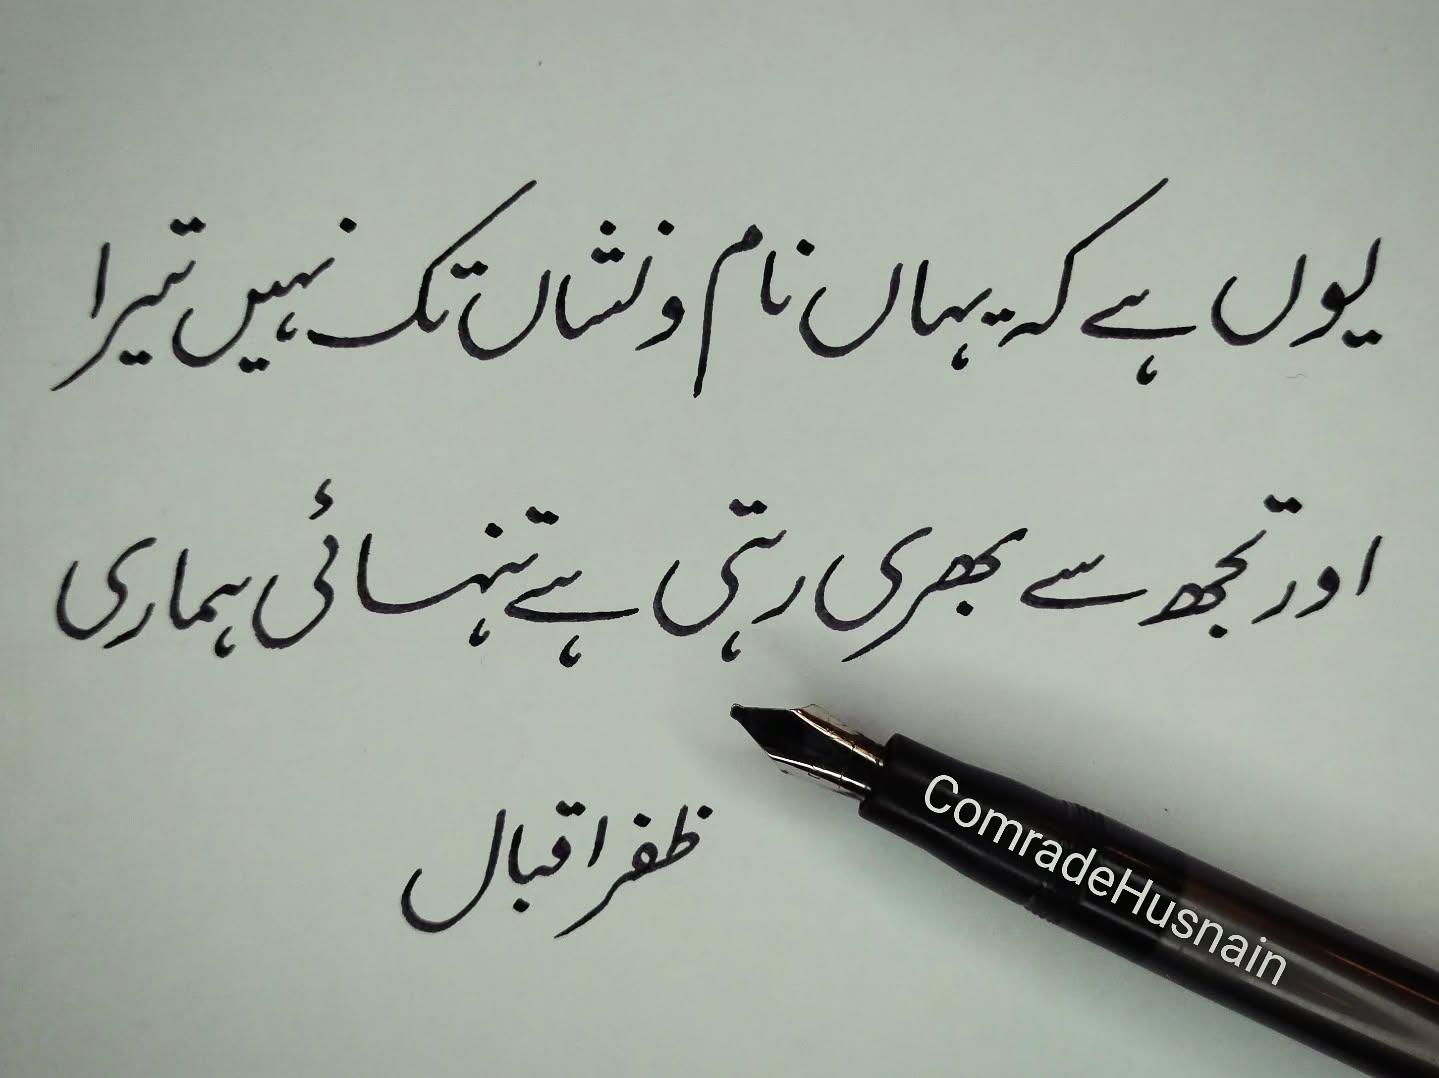 یوں ہے کہ یہاں نام و نشاں تک نہیں تیرا
اور تجھ سے بھری رہتی ہے تنہائی ہماری
ظفر اقبال
ComradeHusnain